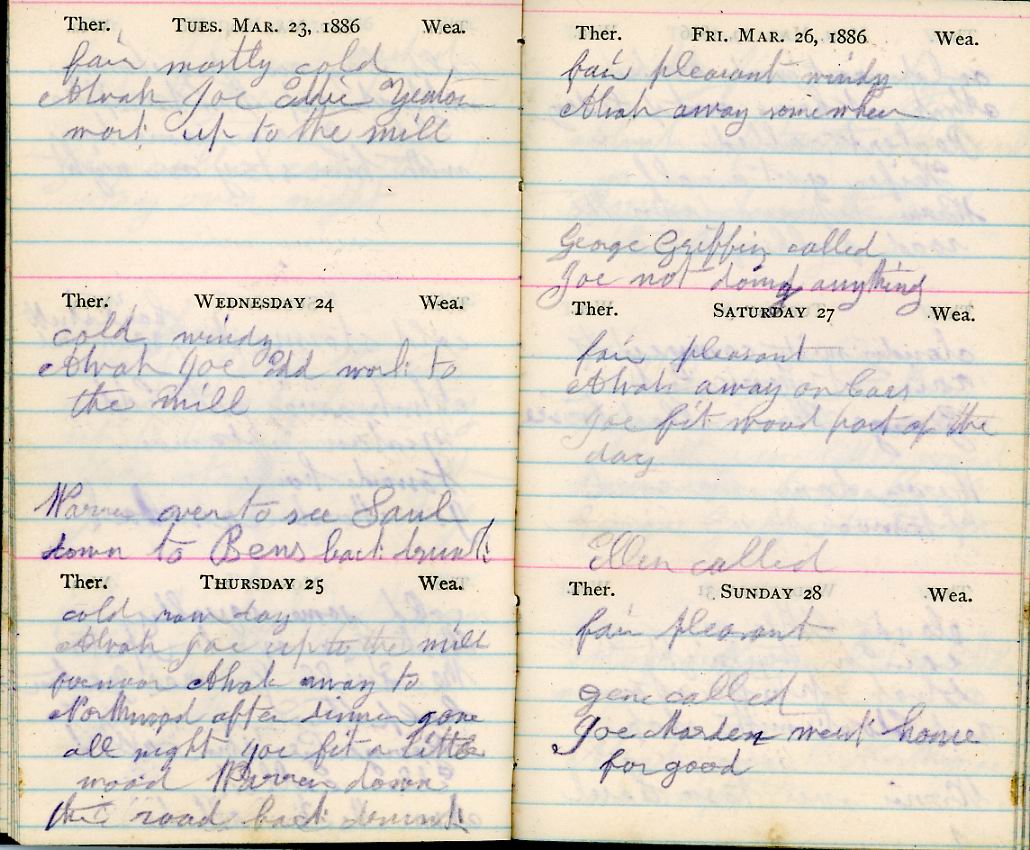 Ther. TUES. MAR. 23, 1886 Wea.
fair mostly cold
Alvah Joe Eddie Yeaton
work up to the mill
Ther. WEDNESDAY 24 Wea.
cold windy
Alvah Joe Edd work to
the mill
Warren over to see Saul
down to Bens back drunk
Ther. THURSDAY 25 Wea.
cold raw day
Alvah Joe up to the mill
forenoon Alvah away to
Northwood after dinner gone
all night Joe fit a little
wood Warren down
the road back drunk
Ther. FRI. MAR. 26, 1886 Wea.
fair pleasant windy
Alvah away somewhere
George Griffin called
Joe not doing anything
Ther. SATURDAY 27 Wea.
fair pleasant
Alvah away on Cars
Joe fit wood part of the
day
Ellen called
Ther. SUNDAY 28 Wea.
fair pleasant
gene called
Joe Marden went home
for good